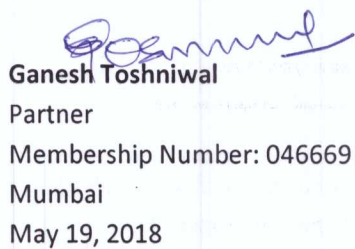 Ganesh Toshniwal
Partner
Membership Number: 046669
Mumbai
May 19, 2018